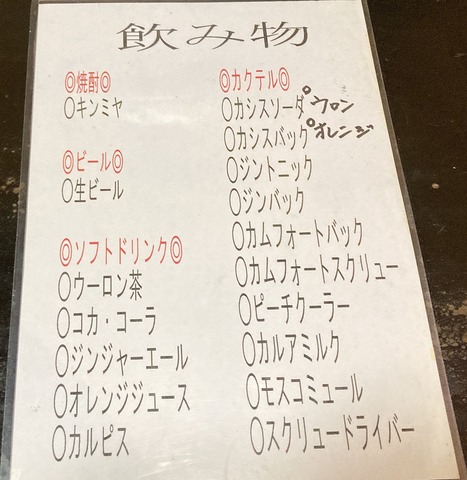 飲み物
◎焼酎◎
○キンミヤ
◎ビール◎
○生ビール
◎ソフトドリンク◎
○ウーロン茶
○コカ・コーラ
○ジンジャーエール
○オレンジジュース
○カルピス
◎カクテル◎
○カシスソーダ °ウロン
○カシスバック °オレンジ
○ジントニック
○ジンバック
○カムフォートバック
○カムフォートスクリュー
○ピーチクーラー
○カルアミルク
○モスコミュール
○スクリュードライバー